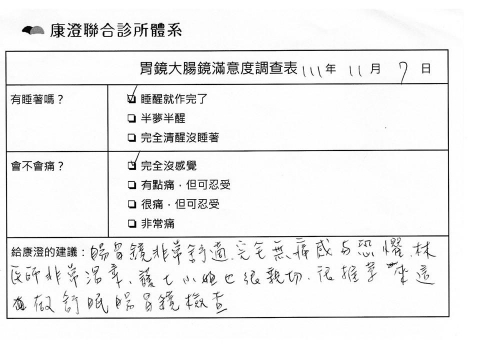 康澄聯合診所體系
胃鏡大腸鏡滿意度調查表 111年 11月 7日
有睡著嗎？
☑ 睡醒就作完了
❑ 半夢半醒
❑ 完全清醒沒睡著
會不會痛？
☑ 完全沒感覺
❑ 有點痛，但可忍受
❑ 很痛，但可忍受
❑ 非常痛
給康澄的建議：腸胃鏡非常舒適，完全無痛感與恐懼，林
醫師非常溫柔、護士小姐也很親切，很推荐來這
做舒眠腸胃鏡檢查